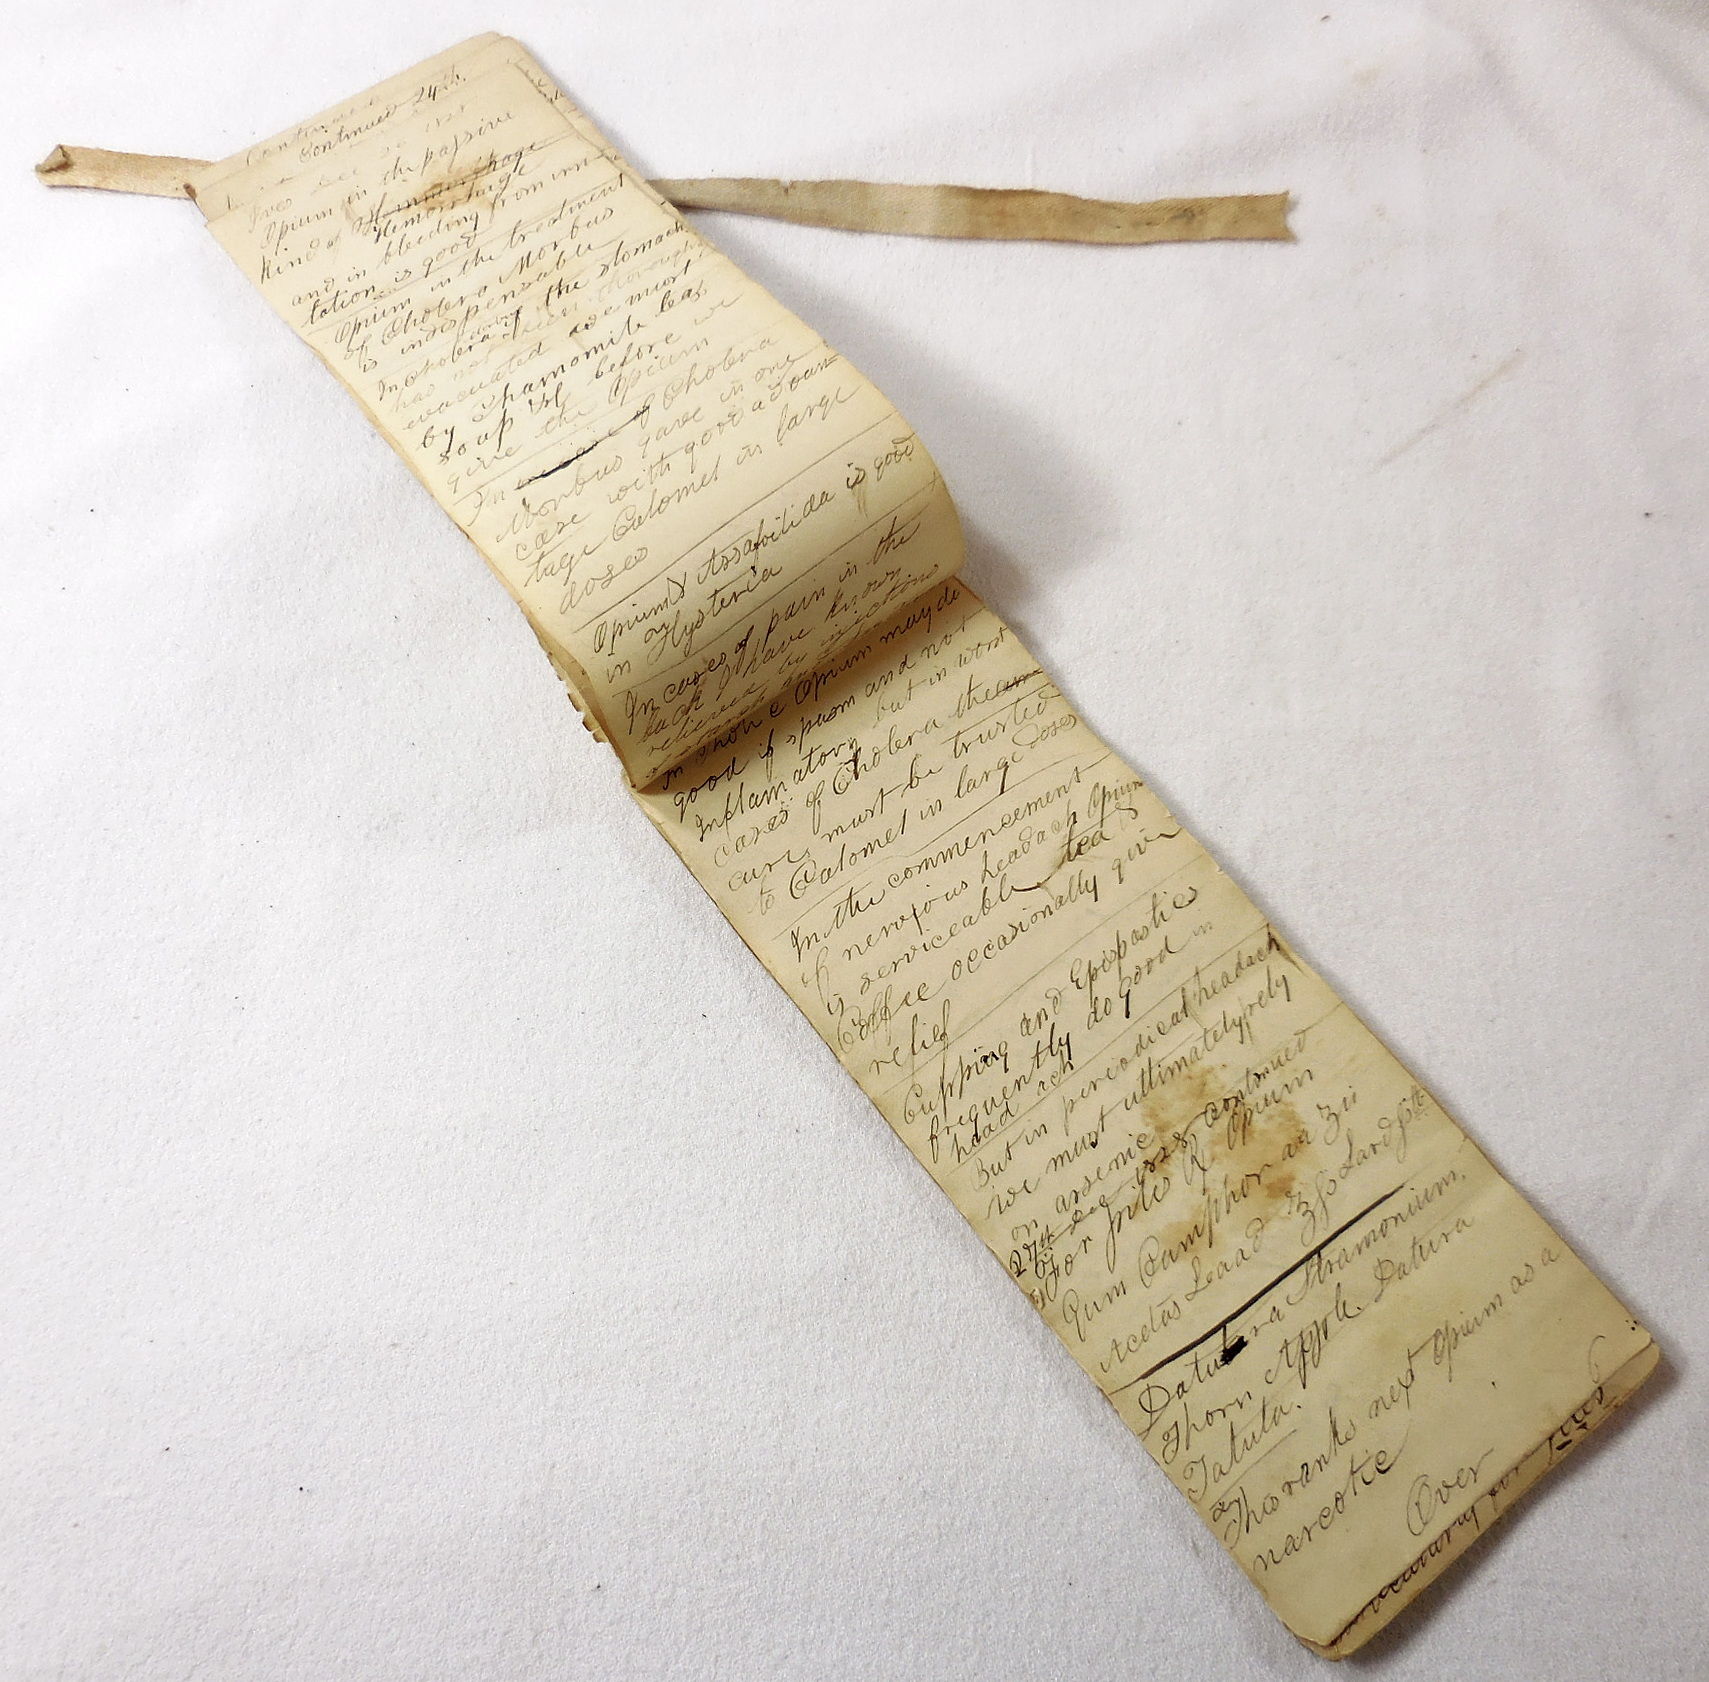 Continued
Continued 24th
Dec
Opium in the passive
kind of Hemorrhage
Hemorrhage
and in bleeding from irri-
tation is good
Opium in the treatment
of Cholera Morbus
is indispensable
In Cholera if the stomach
has not been thoroughly
evacuated we must
by Chamomile tea
soup before we
give the Opium
In case of Cholera
Morbus gave in one
case with good advan=
tage Calomel in large
doses
Opium & Assafoitida is good
in Hysteria
In cases of pain in the
back I have known
relieved by injections
in Opium may do
good if spasm and not
Inflamatory but in worst
cases of Cholera the
cure must be trusted
to Calomel in large doses
In the commencement
of nervious headach Opium
is serviceable tea &
Coffee occasionally give
relief
Cupping and Epispastics
frequently do good in
head ach
But in periodical headach
we must ultimately rely
on arsenic
27th Dec continued
For piles ℞ Opium
Gum Camphor aa ʒii
Acetas Lead Lard
Datura Stramonium.
Thorn Apple. Datura
Tatula.
This ranks next Opium as a
narcotic
Over